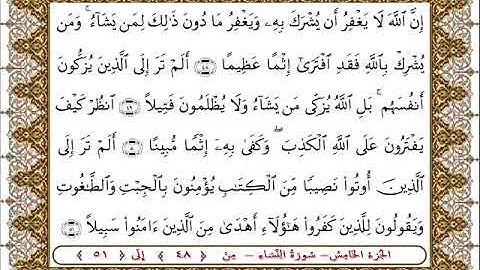 إِنَّ ٱللَّهَ لَا يَغْفِرُ أَن يُشْرَكَ بِهِۦ وَيَغْفِرُ مَا دُونَ ذَٰلِكَ لِمَن يَشَآءُ ۚ وَمَن
يُشْرِكْ بِٱللَّهِ فَقَدِ ٱفْتَرَىٰٓ إِثْمًا عَظِيمًا ﴿٤٨﴾ أَلَمْ تَرَ إِلَى ٱلَّذِينَ يُزَكُّونَ
أَنفُسَهُم ۚ بَلِ ٱللَّهُ يُزَكِّى مَن يَشَآءُ وَلَا يُظْلَمُونَ فَتِيلًا ﴿٤٩﴾ ٱنظُرْ كَيْفَ
يَفْتَرُونَ عَلَى ٱللَّهِ ٱلْكَذِبَ ۖ وَكَفَىٰ بِهِۦٓ إِثْمًا مُّبِينًا ﴿٥٠﴾ أَلَمْ تَرَ إِلَى
ٱلَّذِينَ أُوتُوا۟ نَصِيبًا مِّنَ ٱلْكِتَٰبِ يُؤْمِنُونَ بِٱلْجِبْتِ وَٱلطَّٰغُوتِ
وَيَقُولُونَ لِلَّذِينَ كَفَرُوا۟ هَٰٓؤُلَآءِ أَهْدَىٰ مِنَ ٱلَّذِينَ ءَامَنُوا۟ سَبِيلًا ﴿٥١﴾
الجزء الخامس - سورة النساء - من ﴿ ٤٨ ﴾ إلى ﴿ ٥١ ﴾